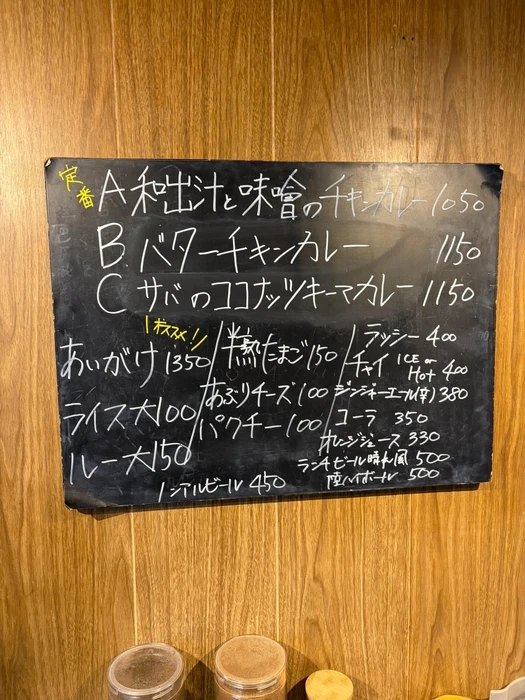 定番
A 和出汁と味噌のチキンカレー 1050
B バターチキンカレー 1150
C サバのココナッツキーマカレー 1150
オススメ!
あいがけ 1350
ライス大 100
ルー大 150
半熟たまご 150
あぶりチーズ 100
パクチー 100
ラッシー 400
チャイ ICE or Hot 400
ジンジャーエール(辛) 380
コーラ 350
オレンジジュース 330
ランチビール 晴れ風 500
陸ハイボール 500
ノンアルビール 450